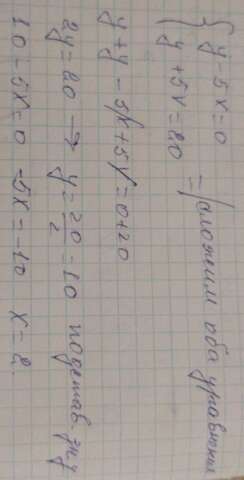 { y - 5x = 0
{ y + 5x = 20 = | сложим оба уравнения
y + y - 5x + 5x = 0 + 20
2y = 20 → y = 20/2 = 10 подставим
10 - 5x = 0 -5x = -10 x = 2.